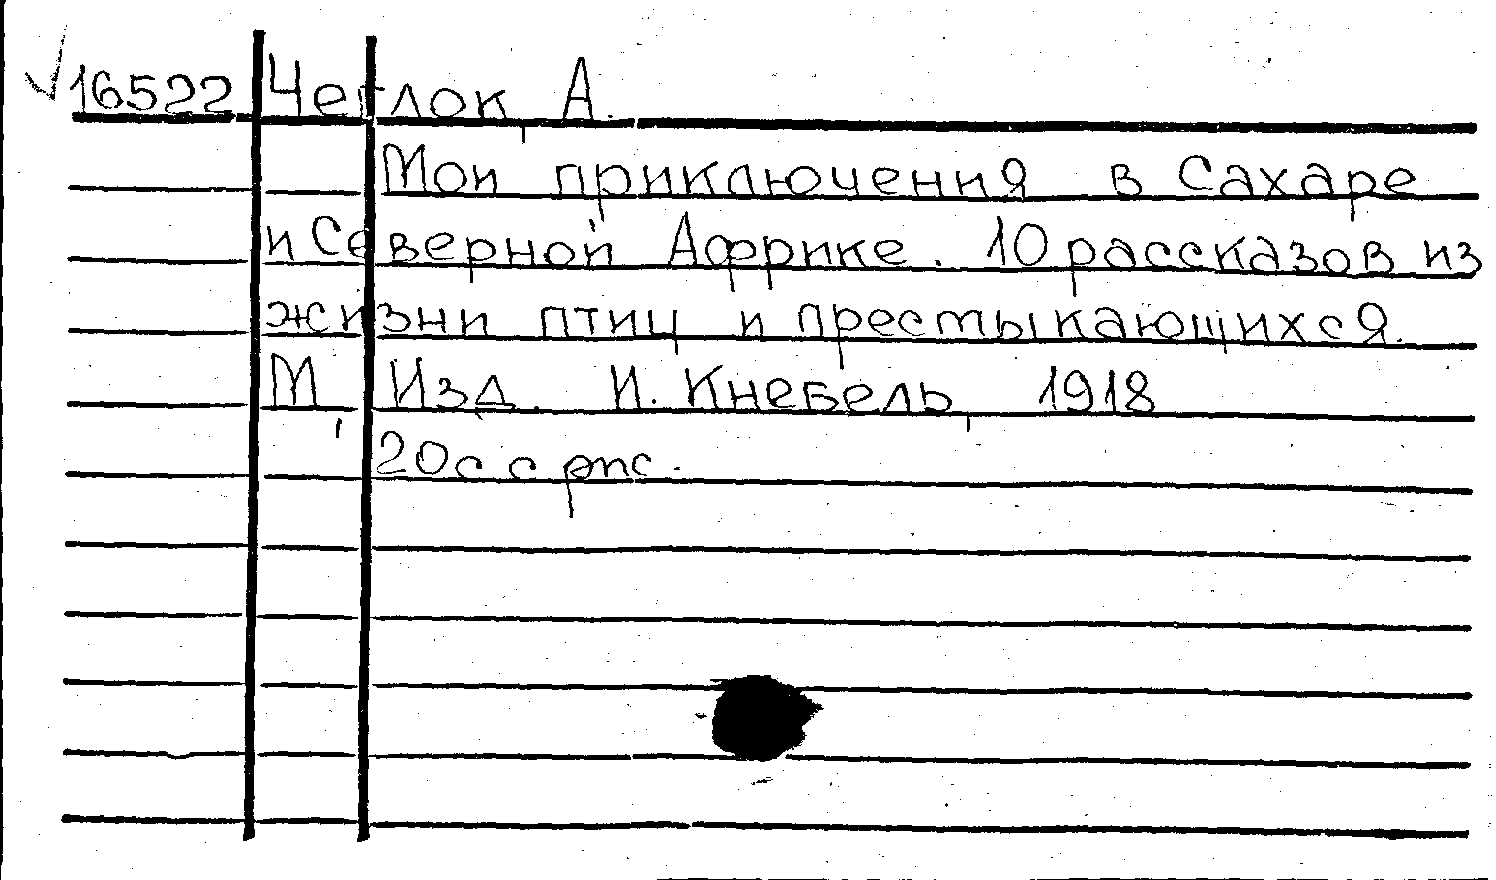 √16522 Чеглок, А.
Мои приключения в Сахаре
и Северной Африке. 10 рассказов из
жизни птиц и престыкающихся.
М, Изд. И. Кнебель, 1918
20с с рис.